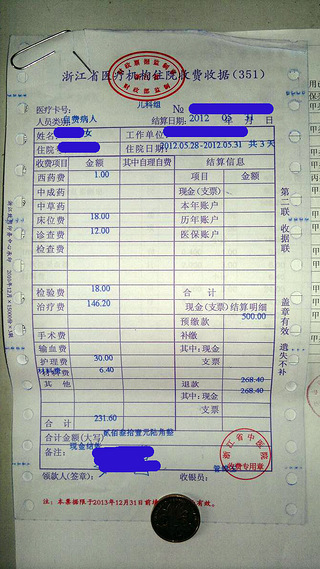 浙江省医疗机构住院收费收据(351)
财政部监制
医疗卡号: 儿科组 №
人员类别: 自费病人 结算日期: 2012 05 31 日
姓名 女 工作单位
住院 住院日期: 2012.05.28-2012.05.31 共 3 天
收费项目 金额 其中自理自费 结算信息
西药费 1.00 项目 金额
中成药 现金(支票)
中草药 本年账户
床位费 18.00 历年账户
诊查费 12.00 医保账户
检查费
检验费 18.00 合计
治疗费 146.20 现金(支票)结算明细
预缴款 500.00
手术费 补缴
输血费 其中:现金
护理费 30.00 支票
材料费 6.40
其他 退款 268.40
其中:现金 268.40
支票
合计 231.60
合计金额(大写) 贰佰叁拾壹元陆角整
备注: 现金结算
领款人(签章): 收银员:
浙江省中医院
收费专用章
注:本票据限于2013年12月31日前 有效。
第二联 收据联
盖章有效 遗失不补